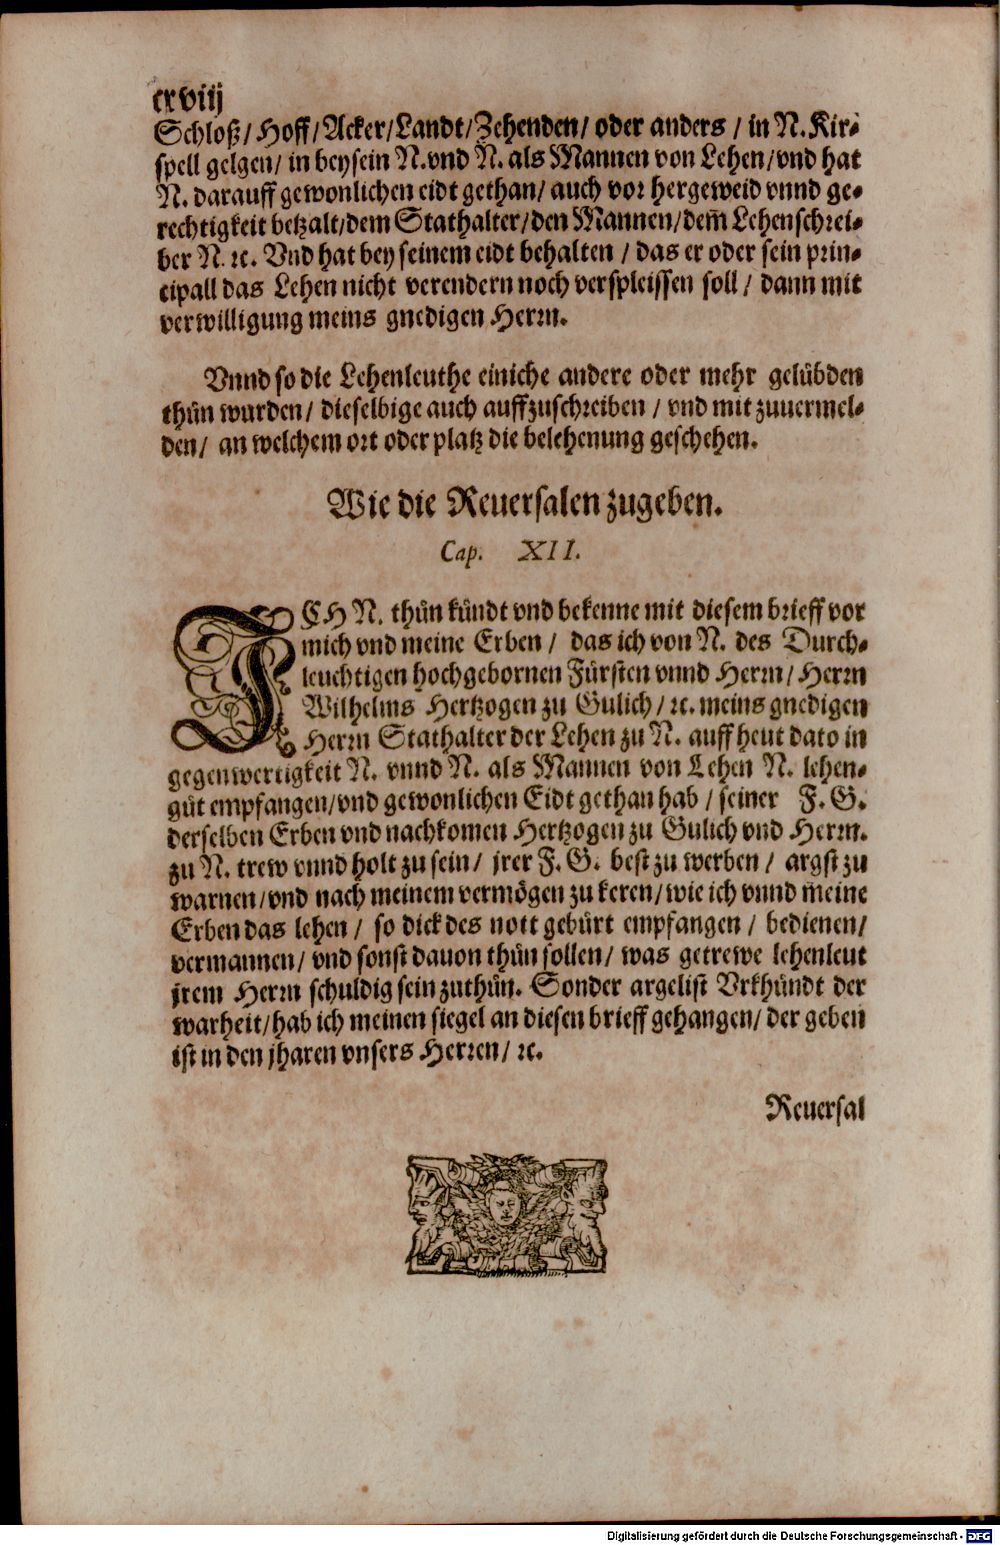 cxviij
Schloß/ Hoff/ Acker/ Landt/ Zehenden/ oder anders / in N. Kir-
spell gelgen/ in beysein N. vnd N. als Mannen von Lehen/ vnd hat
N. darauff gewonlichen eidt gethan/ auch vor hergeweid vnnd ge-
rechtigkeit betzalt/ dem Stathalter/ den Mannen/ dem̃ Lehenschrei-
ber N. ꝛc. Vnd hat bey seinem eidt behalten / das er oder sein prin-
cipall das Lehen nicht verendern noch verspleissen soll / dann mit
verwilligung meins gnedigen Herrn.
Vnnd so die Lehenleuthe einiche andere oder mehr gelübden
thůn wurden/ dieselbige auch auffzuschreiben / vnd mit zuuermel-
den/ an welchem ort oder platz die belehenung geschehen.
Wie die Reuersalen zugeben.
Cap. XII.
ICH N. thůn kůndt vnd bekenne mit diesem brieff vor
mich vnd meine Erben / das ich von N. des Durch-
leuchtigen hochgebornen Fürsten vnnd Herrn/ Herrn
Wilhelms Hertzogen zu Gulich / ꝛc. meins gnedigen
Herrn Stathalter der Lehen zu N. auff heut dato in
gegenwertigkeit N. vnnd N. als Mannen von Lehen N. lehen-
gůt empfangen/ vnd gewonlichen Eidt gethan hab / seiner F. G.
derselben Erben vnd nachkomen Hertzogen zu Gulich vnd Herrn.
zu N. trew vnnd holt zu sein/ jrer F. G. best zu werben / argst zu
warnen/ vnd nach meinem vermögen zu keren/ wie ich vnnd meine
Erben das lehen / so dick des nott gebürt empfangen / bedienen/
vermannen/ vnd sonst dauon thůn sollen/ was getrewe lehenleut
jrem Herrn schuldig sein zuthůn. Sonder argelist Vrkhůndt der
warheit/ hab ich meinen siegel an diesen brieff gehangen/ der geben
ist in den jharen vnsers Herren/ ꝛc.
Reuersal
Digitalisierung gefördert durch die Deutsche Forschungsgemeinschaft - DFG